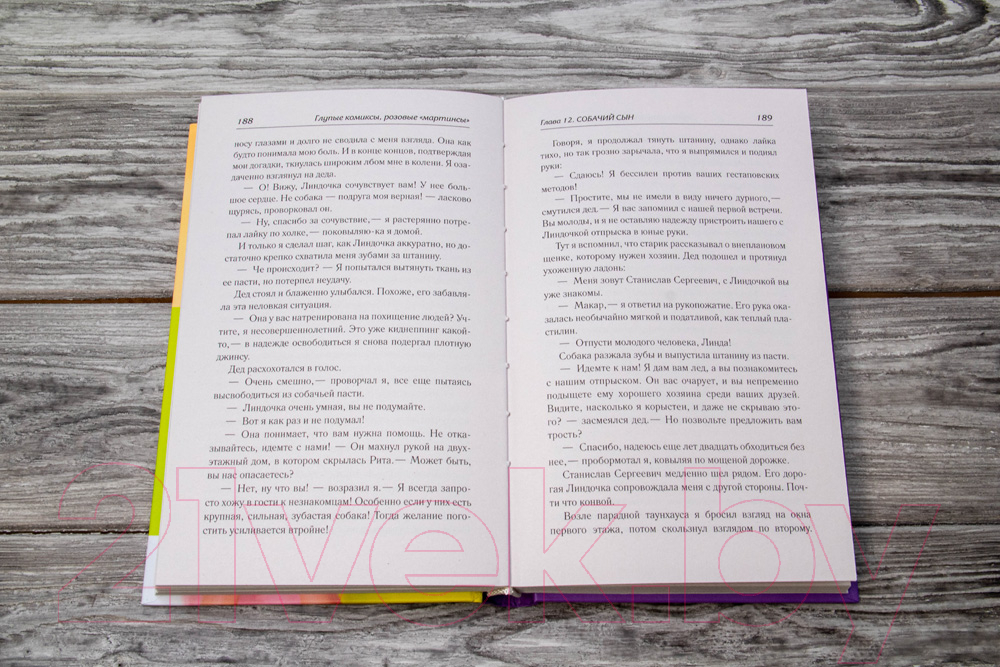 188
Глупые комиксы, розовые «мартинсы»
носу глазами и долго не сводила с меня взгляда. Она как
будто понимала мою боль. И в конце концов, подтверждая
мои догадки, ткнулась широким лбом мне в колени. Я оза-
даченно взглянул на деда.
— О! Вижу, Линдочка сочувствует вам! У нее боль-
шое сердце. Не собака — подруга моя верная! — ласково
щурись, проворковал он.
— Ну, спасибо за сочувствие,— я растерянно потре-
пал лайку по холке,— поковыляю-ка я домой.
И только я сделал шаг, как Линдочка аккуратно, но до-
статочно крепко схватила меня зубами за штанину.
— Че происходит? — Я попытался вытянуть ткань из
ее пасти, но потерпел неудачу.
Дед стоял и блаженно улыбался. Похоже, его забавля-
ла эта неловкая ситуация.
— Она у вас натренирована на похищение людей? Учт-
ите, я несовершеннолетний. Это уже киднеппинг какой-
то,— в надежде освободиться я снова подергал плотную
джинсу.
Дед расхохотался в голос.
— Очень смешно,— проворчал я, все еще пытаясь
высвободиться из собачьей пасти.
— Линдочка очень умная, вы не подумайте.
— Вот я как раз и не подумал!
— Она понимает, что вам нужна помощь. Не отка-
зывайтесь, идемте с нами! — Он махнул рукой на двух-
этажный дом, в котором скрылась Рита.— Может быть,
вы нас опасаетесь?
— Нет, ну что вы! — возразил я.— Я всегда запро-
сто хожу в гости к незнакомцам! Особенно если у них есть
крупная, сильная, зубастая собака! Тогда желание пого-
стить усиливается втройне!
Глава 12. СОБАЧИЙ СЫН
189
Говоря, я продолжал тянуть штанину, однако лайка
тихо, но так грозно зарычала, что я выпрямился и поднял
руки:
— Сдаюсь! Я бессилен против ваших гестаповских
методов!
— Простите, мы не имели в виду ничего дурного,—
смутился дед.— Я вас запомнил с нашей первой встречи.
Вы молоды, и я не оставляю надежду пристроить нашего с
Линдочкой отпрыска в юные руки.
Тут я вспомнил, что старик рассказывал о внеплановом
щенке, которому нужен хозяин. Дед подошел и протянул
ухоженную ладонь:
— Меня зовут Станислав Сергеевич, с Линдочкой вы
уже знакомы.
— Макар,— я ответил на рукопожатие. Его рука ока-
залась необычайно мягкой и податливой, как теплый пла-
стилин.
— Отпусти молодого человека, Линда!
Собака разжала зубы и выпустила штанину из пасти.
— Идемте к нам! Я дам вам лед, а вы познакомитесь
с нашим отпрыском. Он вас очарует, и вы непременно
подыщете ему хорошего хозяина среди ваших друзей.
Видите, насколько я корыстен, и даже не скрываю это-
го? — засмеялся дед.— Но позвольте предложить вам
трость?
— Спасибо, надеюсь еще лет двадцать обходиться без
нее,— пробормотал я, ковыляя по мощеной дорожке.
Станислав Сергеевич медленно шел рядом. Его доро-
гая Линдочка сопровождала меня с другой стороны. Поч-
ти что конвой.
Возле парадной таунхауса я бросил взгляд на окна
первого этажа, потом скользнул взглядом по второму.
21vek.by